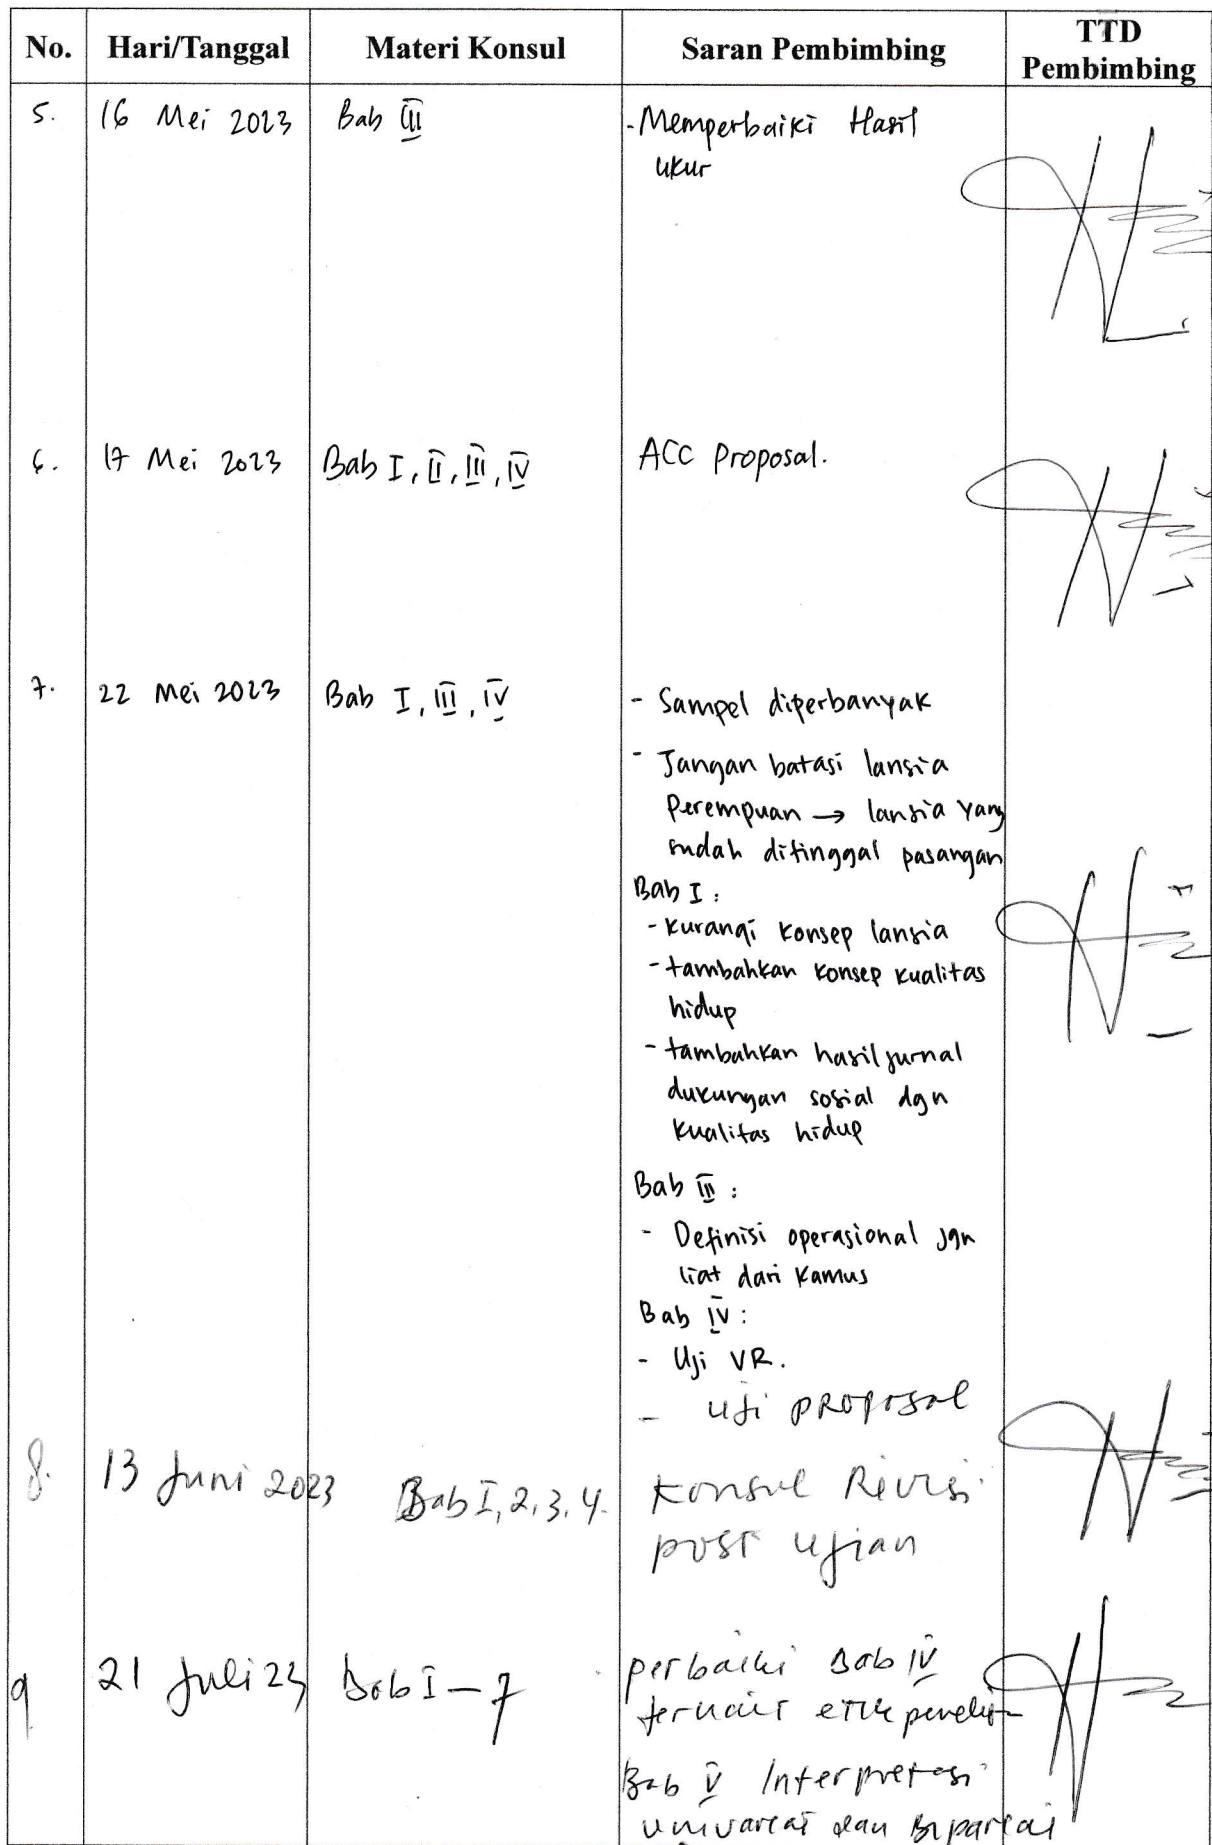 No. Hari/Tanggal Materi Konsul Saran Pembimbing TTD Pembimbing
5. 16 Mei 2023 Bab III - Memperbaiki Hasil
ukur
6. 17 Mei 2023 Bab I, II, III, IV ACC Proposal.
7. 22 Mei 2023 Bab I, III, IV - Sampel diperbanyak
- Jangan batasi lansia
Perempuan → lansia yang
sudah ditinggal pasangan
Bab I :
- Kurangi Konsep lansia
- tambahkan Konsep Kualitas
hidup
- tambahkan hasil jurnal
dukungan sosial dgn
Kualitas hidup
Bab III :
- Definisi operasional jgn
liat dari Kamus
Bab IV :
- Uji VR.
- Uji proposal
8. 13 Juni 2023 Bab I, 2, 3, 4. Konsul Revisi
post Ujian
9 21 Juli 23 Bab I - 7 perbaiki Bab IV
terkait etik
Bab V Interpretasi
univariat dan Bivariat